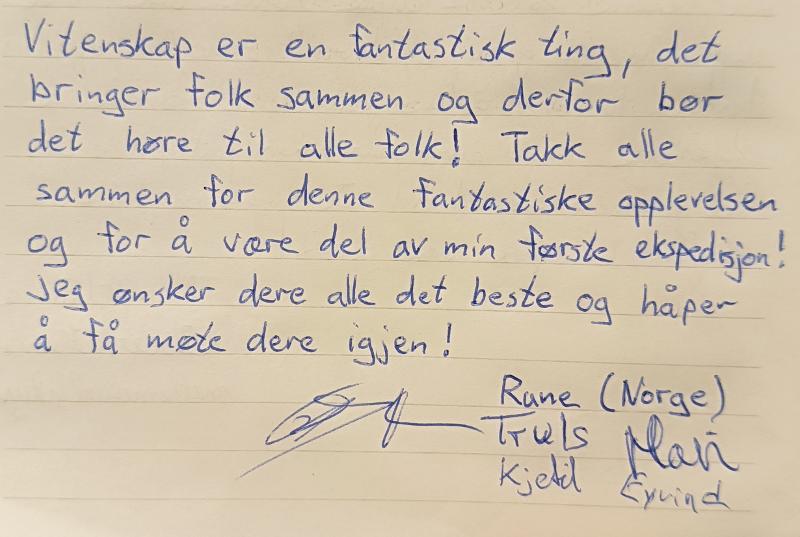 Vitenskap er en fantastisk ting, det
bringer folk sammen og derfor bør
det høre til alle folk! Takk alle
sammen for denne fantastiske opplevelsen
og for å være del av min første ekspedisjon!
Jeg ønsker dere alle det beste og håper
å få møte dere igjen!
Rune (Norge)
Truls
Kjetil Eyvind